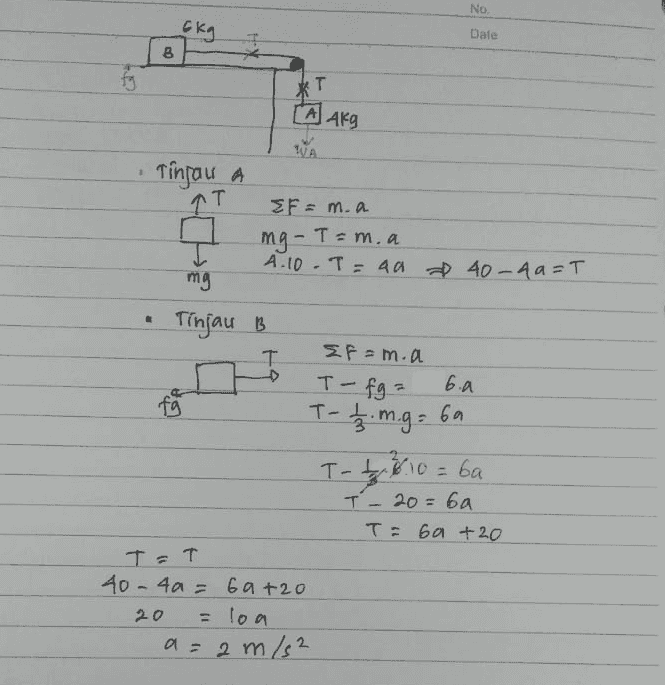 No.
Date
6kg
T
B
fg
T
A 4kg
WA
• Tinjau A
T
ΣF = m.a
mg - T = m.a
4.10 - T = 4a ⇒ 40 - 4a = T
mg
• Tinjau B
T
ΣF = m.a
fg
T - fg = 6.a
T - 1/3 . m.g = 6a
T - 1/3 . 6 2 .10 = 6a
T - 20 = 6a
T = 6a + 20
T = T
40 - 4a = 6a + 20
20 = 10a
a = 2 m/s²